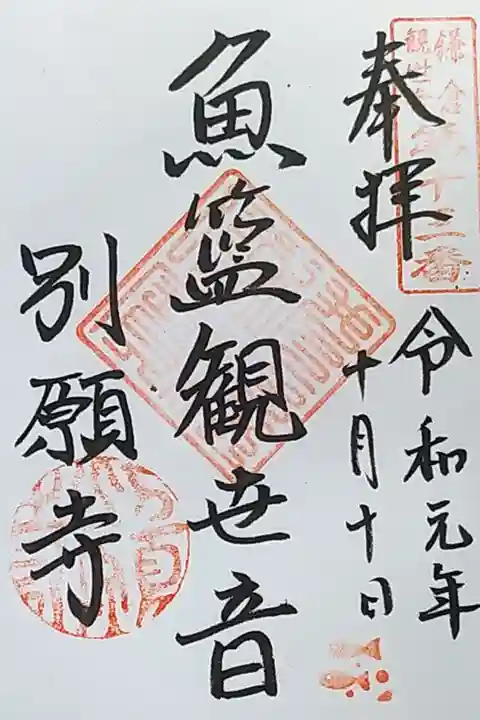 鎌倉
観世音
第十三番
奉拝
令和元年
十月十日
魚籃観世音
別願寺